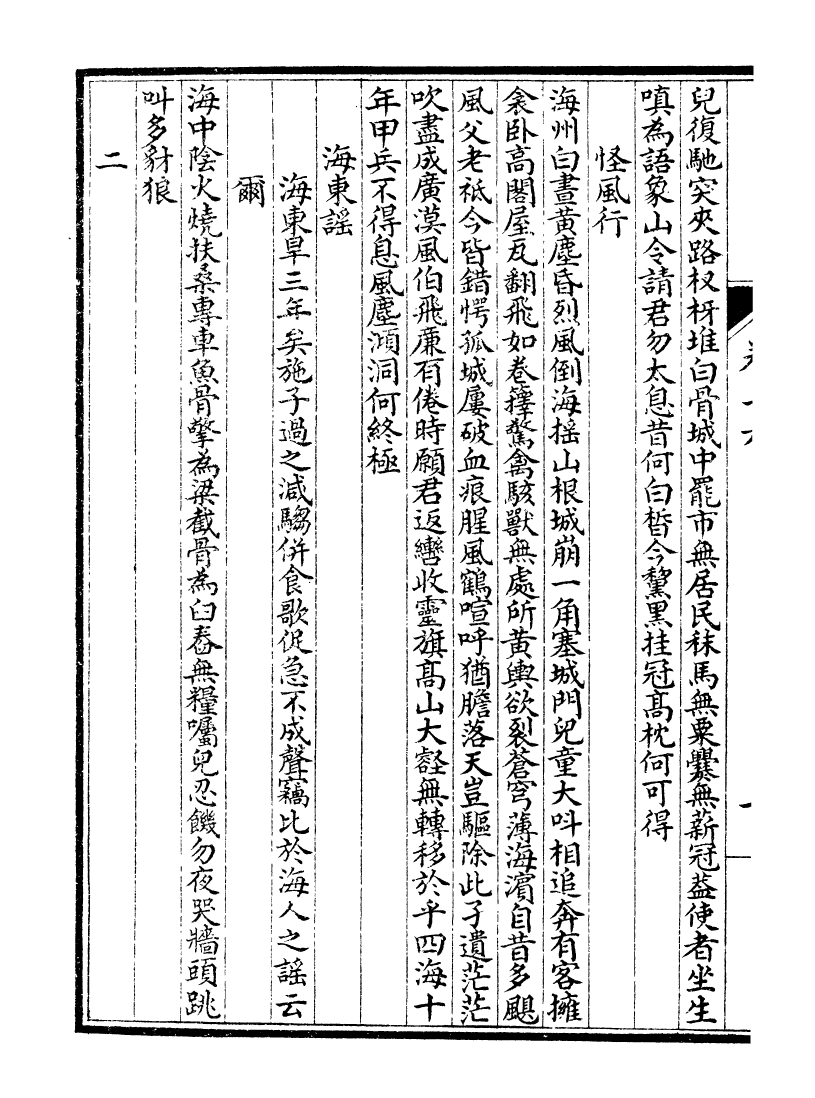 兒復馳突夾路杈枒堆白骨城中罷市無居民秣馬無粟爨無薪冠葢使者坐生
嗔為語象山令請君勿太息昔何白晳今黧黑挂冠髙枕何可得
怪風行
海州白晝黃塵昏烈風倒海揺山根城崩一角塞城門兒童大呌相追奔有客擁
衾卧高閣屋瓦翻飛如卷籜驚禽駭獸無處所黃輿欲裂蒼穹薄海濵自昔多颶
風父老祗今皆錯愕孤城屢破血痕腥風鶴喧呼猶膽落天豈驅除此孑遺茫茫
吹盡成廣漠風伯飛廉有倦時願君返轡收靈旗髙山大壑無轉移於乎四海十
年甲兵不得息風塵澒洞何終極
海東謡
海東旱三年矣施子過之減騶併食歌促急不成聲竊比於海人之謡云
爾
海中陰火燒扶桑專車魚骨擎為梁截骨為臼舂無糧囑兒忍饑勿夜哭牆頭跳
叫多豺狼
二